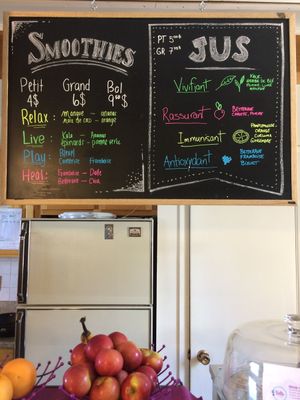 SMOOTHIES
Petit Grand Bol
4$ 6$ 9
Relax: Mangue ananas
orange
Live: Kale Ananas
Épinards - pomme verte
Play: Framboise
Heal: Framboise - Datte
Betterave - Chia
JUS
PT 5
GR 7
Vivifiant
Rassurant Betterave
Carotte, Pomme
Immunisant Pamplemousse
orange
Curcuma
Gingembre
Antioxydant Betterave
Framboise
Bleuet